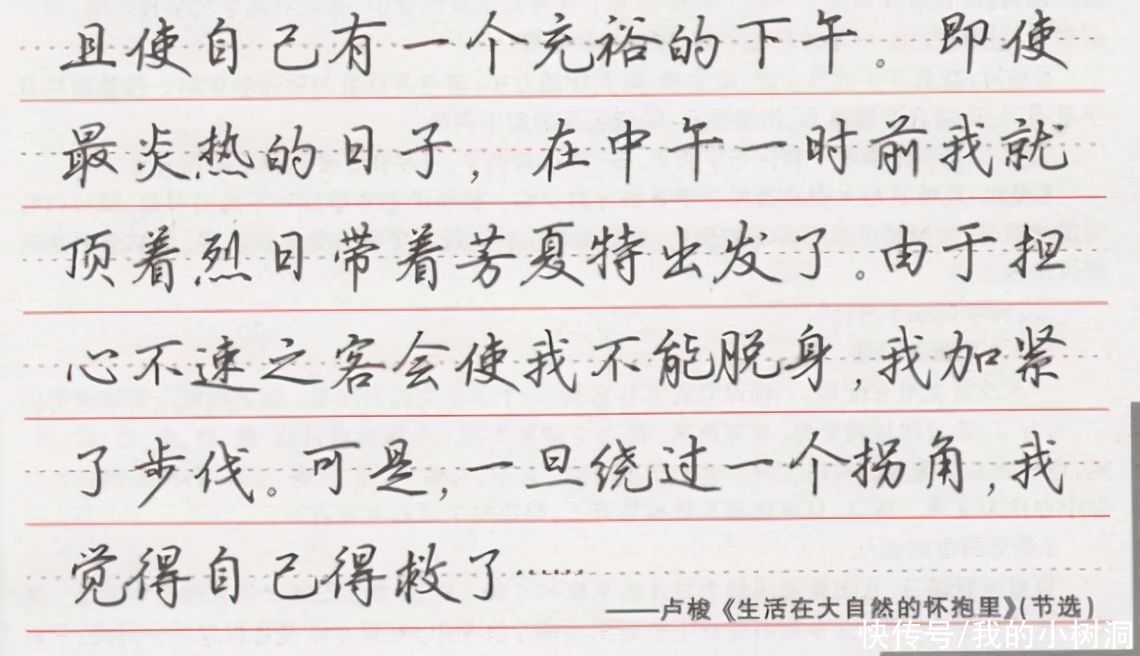 且使自己有一个充裕的下午。即使
最炎热的日子，在中午一时前我就
顶着烈日带着芳夏特出发了。由于担
心不速之客会使我不能脱身，我加紧
了步伐。可是，一旦绕过一个拐角，我
觉得自己得救了……
——卢梭《生活在大自然的怀抱里》(节选)
快传号/我的小树洞